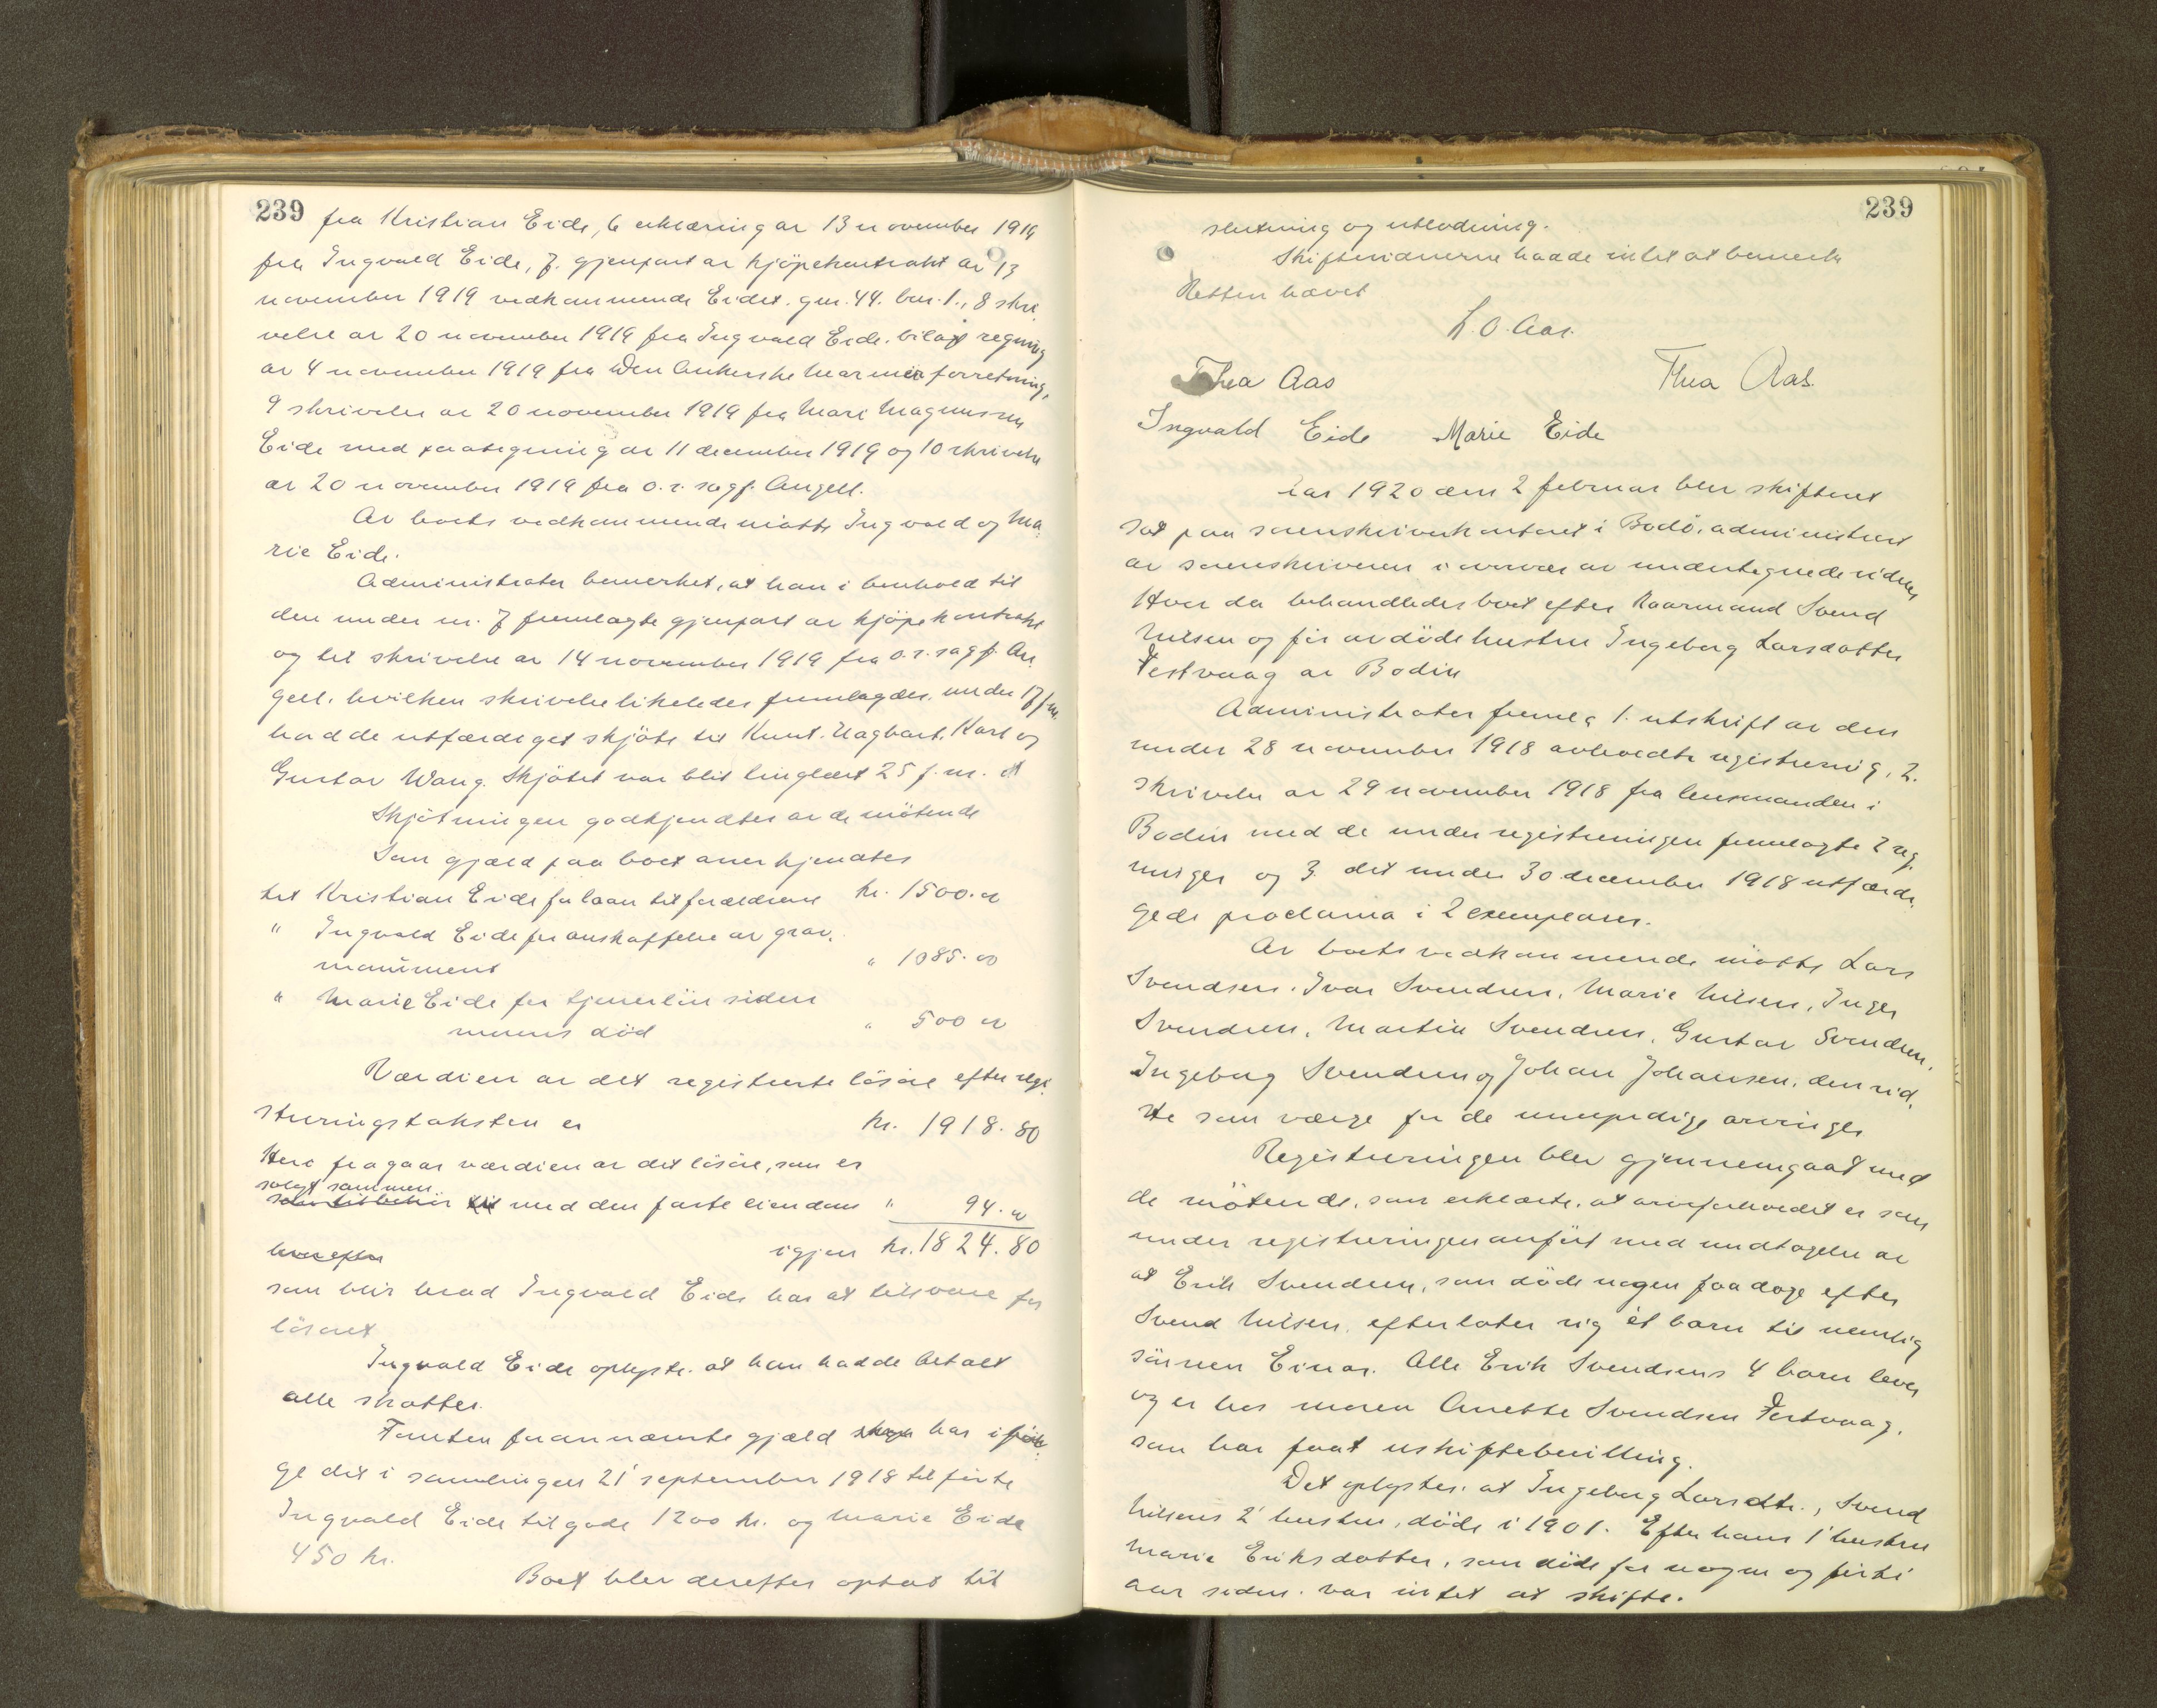 239 fra Kristian Eide, 6 erklæring av 13 november 1919
fra Ingvald Eide, 7. gjenpart av kjöpekontrakt av 13
november 1919 vedkommende Eidet. gnr. 44. bnr. 1., 8 skri-
velse av 20 november 1919 fra Ingvald Eide. bilagt regning
av 4 november 1919 fra Den Ankerske Marmorforretning,
9 skrivelse av 20 november 1919 fra Mari Magnussen
Eide med paategning av 11 december 1919 og 10 skrivelse
av 20 november 1919 fra o.r. sagf. Angell.
Av boets vedkommende mötte Ingvald og Ma-
rie Eide.
Administrator bemerket, at han i henhold til
den under nr. 7 fremlagte gjenpart av kjöpekontrakt
og til skrivelse av 14 november 1919 fra o.r. sagf. An
gell, hvilken skrivelse likeledes fremlagdes under
hadde utfærdiget skjöte til Knut. Hagbart. Karl og
Gustav Wang. Skjötet var blit tinglæst 25 f.m.
Skjötningen godkjendtes av de mötende
Som gjæld paa boet anerkjendtes
til Kristian Eide for laan til forældrene kr. 1500.00
" Ingvald Eide for anskaffelse av grav-
monument " 1085.00
" Marie Eide for tjenerlön siden
morens död " 500 00
Værdien av det registrerte lösöre efter regi-
streringstaksten er kr. 1918.80
Herav fragaar værdien av det lösöre, som er
solgt sammen
som tilbehör til med den faste eiendom " 94.00
herefter igjen kr. 1824.80
som blir hvad Ingvald Eide har at tilsvare for
lösöret
Ingvald Eide oplyste. at han hadde betalt
alle skatter.
Foruten foran nævnte gjæld har iföl-
ge det i samlingen 21' september 1918 tilförte
Ingvald Eide tilgode 1200 kr. og Marie Eide
450 kr.
Boet blev derefter optat til
239
slutning og utlodning.
Skiftevidnerne hadde intet at bemerke
Retten hævet
L.O. Aas.
Thea Aas Thea Aas.
Ingvald Eide Marie Eide
Aar 1920 den 2 februar blev skifteret
sat paa sorenskriverkontoret i Bodö, administrert
av sorenskriveren i overvær av undertegnede vidner
Hvor da behandledes boet efter Kaarmand Svend
Nilsen og för avdöde hustru Ingeborg Larsdatter
Festvaag av Bodin
Administrator fremla 1. utskrift av den
under 28 november 1918 avholdte registrering, 2.
skrivelse av 29 november 1918 fra lensmanden i
Bodin med de under registreringen fremlagte 2 reg-
ninger og 3. det under 30 december 1918 utfærdi-
gede proclama i 2 exemplarer.
Av boets vedkommende mötte Lars
Svendsen. Ivar Svendsen, Marie Nilsen, Inger
Svendsen, Martin Svendsen, Gustav Svendsen,
Ingeborg Svendsen og Johan Johansen. den sid-
ste som værge for de umyndige arvinger
Registreringen blev gjennemgaat med
de mötende, som erklærte, at arveforholdet er som
under registreringen anfört med undtagelse av
at Erik Svendsen, som döde nogen faa dage efter
Svend Nilsen, efterlater sig ét barn til nemlig
sönnen Einar. Alle Erik Svendsens 4 barn lever
og er hos moren Anette Svendsen Festvaag.
som har faat uskiftebevilling.
Det oplystes. at Ingeborg Larsdtr., Svend
Nilsens 2' hustru, döde i 1901. Efter hans 1' hustru
Marie Eriksdatter, som döde for nogen og firti
aar siden. var intet at skifte.